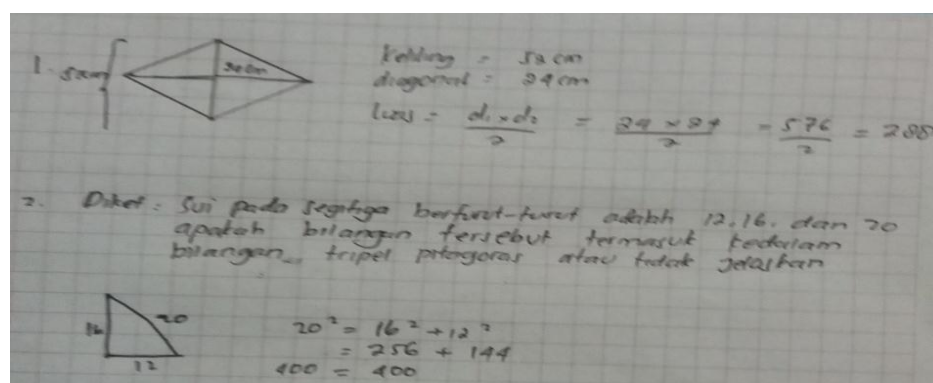 1. 52cm
24cm
Keliling = 52 cm
diagonal = 24 cm
Luas = d₁ × d₂ / 2 = 24 × 24 / 2 = 576 / 2 = 288
2. Diket : Sisi pada segitiga berturut-turut adalah 12, 16, dan 20
apakah bilangan tersebut termasuk kedalam
bilangan tripel pitagoras atau tidak Jelaskan
16
20
12
20² = 16² + 12²
= 256 + 144
400 = 400